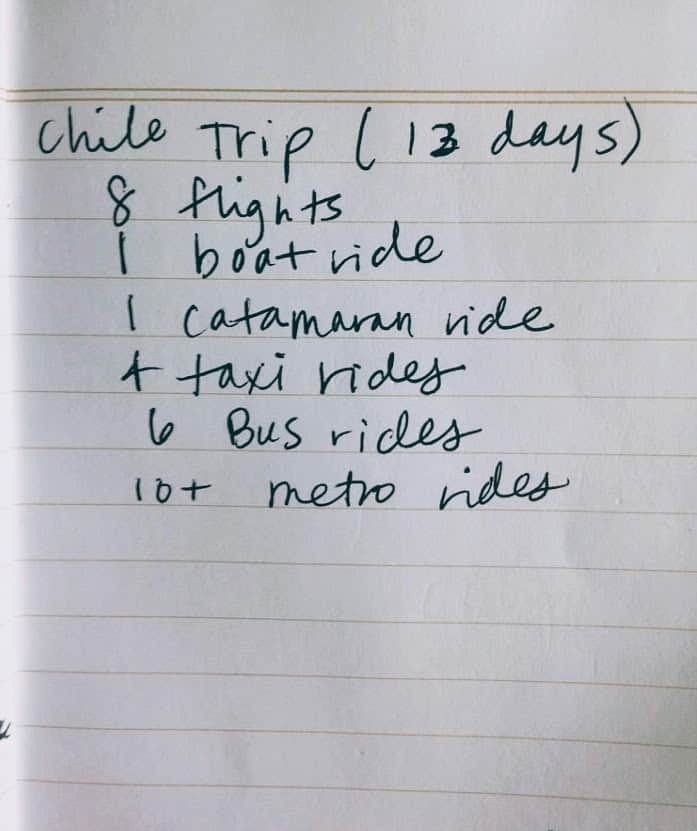 Chile Trip (13 days)
8 flights
1 boat ride
1 catamaran ride
4 taxi rides
6 Bus rides
10+ metro rides